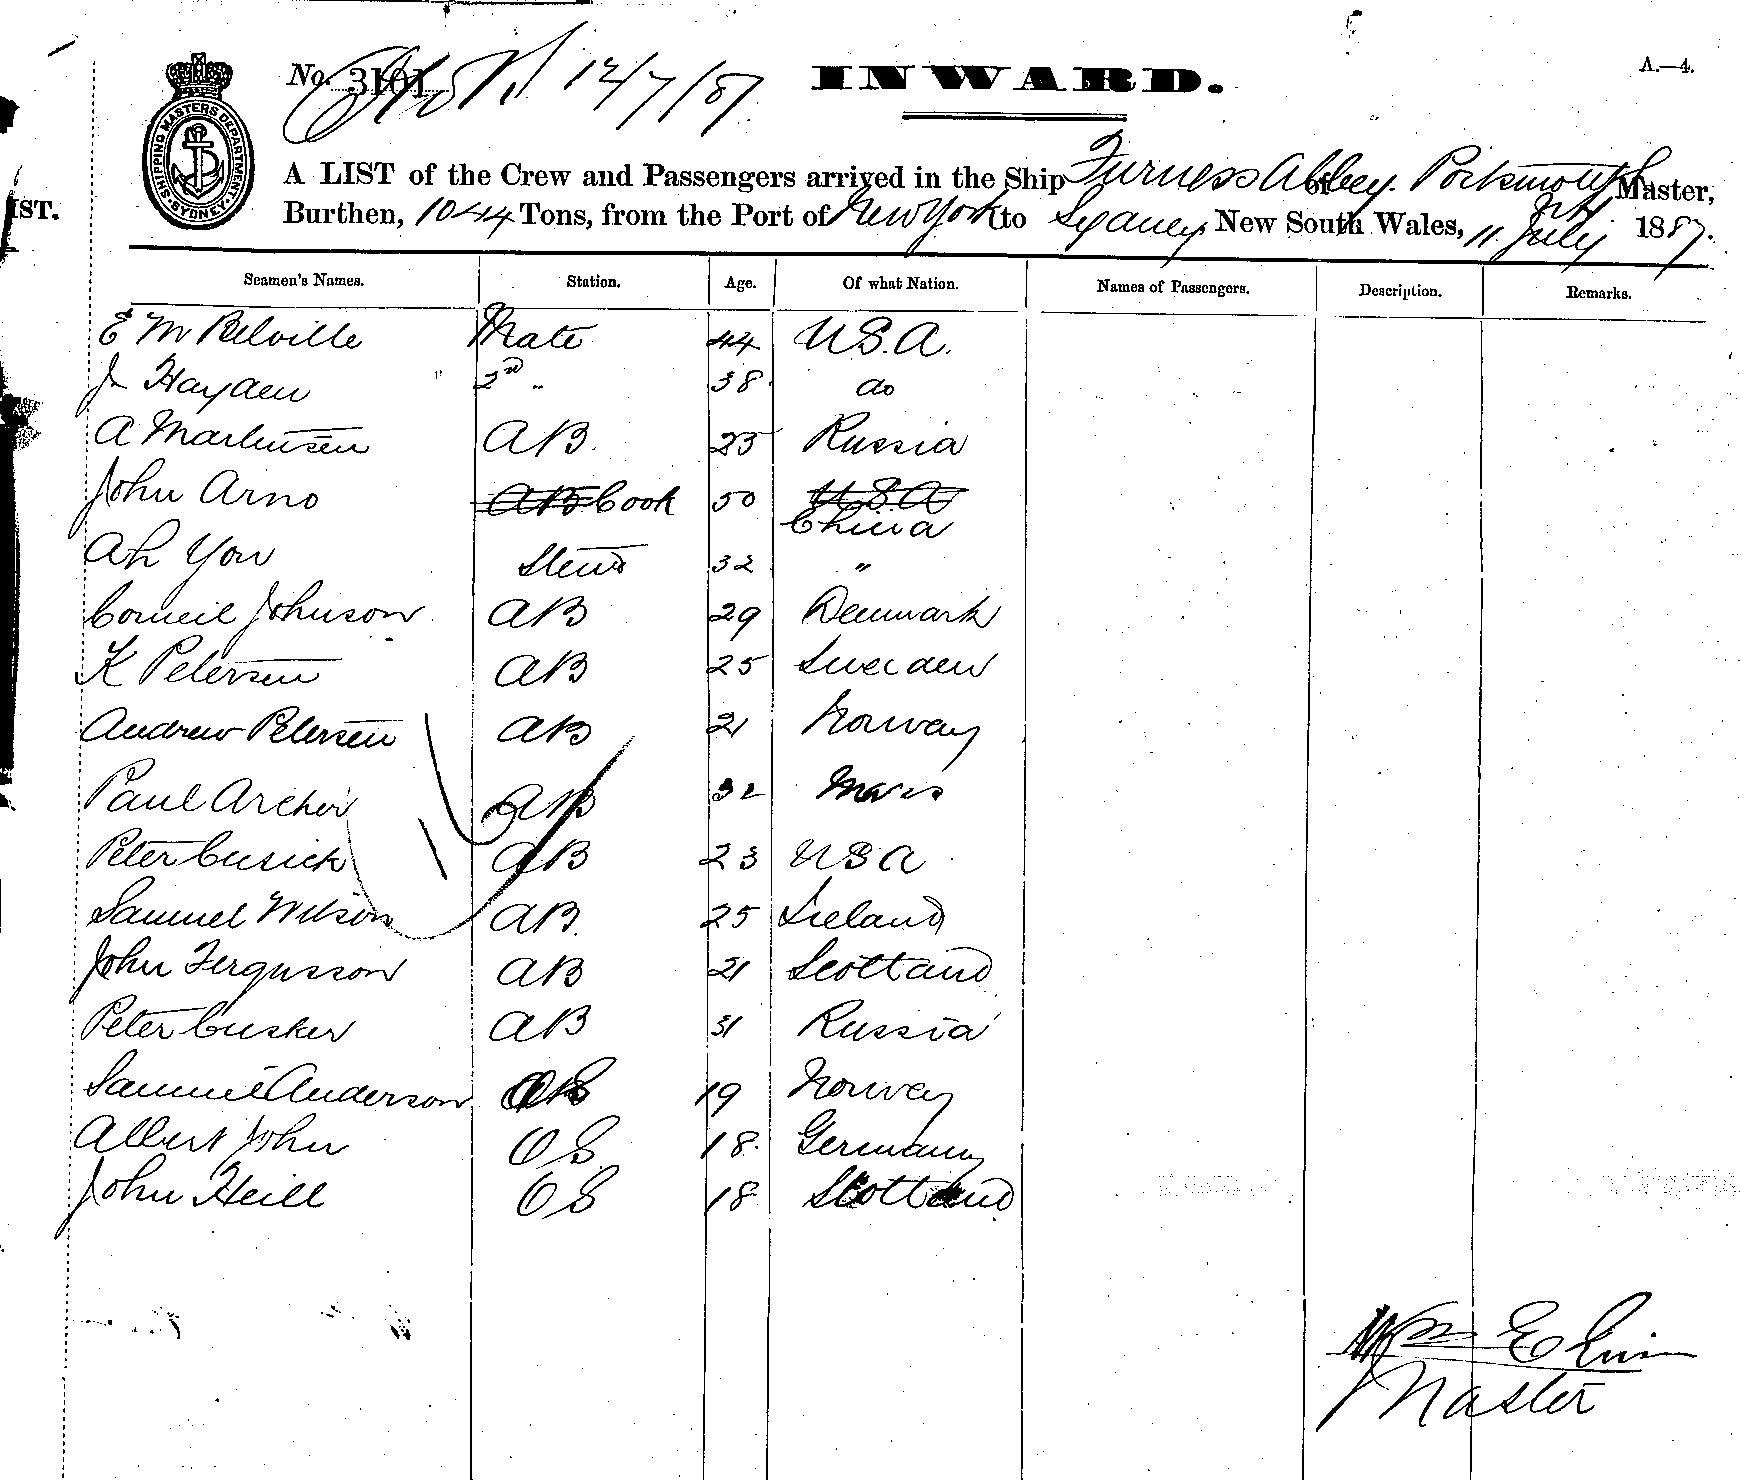 No. 3101 12/7/87 INWARD. A.—4.
SHIPPING MASTERS DEPARTMENT SYDNEY
IST.
A LIST of the Crew and Passengers arrived in the Ship Furness Abbey of Portsmouth Master,
Burthen, 1044 Tons, from the Port of New York to Sydney New South Wales, 11 July 1887.
Seamen's Names. Station. Age. Of what Nation. Names of Passengers. Description. Remarks.
E M Belville Mate 44 U.S.A.
J Hayden 2nd " 38 do
A Martensen AB. 23 Russia
John Arno AB Cook 50 USA
China
Ah You Stewd 32 "
Corneil Johnson AB 29 Denmark
K Petersen AB 25 Sweden
Andrew Petersen AB 21 Norway
Paul Archer AB 32
Peter Cusick AB 23 USA
Samuel Wilson AB. 25 Ireland
John Fergusson AB 21 Scotland
Peter Cusker AB 31 Russia
Samuel Anderson OS 19 Norway
Albert John OS 18 Germany
John Heill OS 18 Scotland
Wm
Master